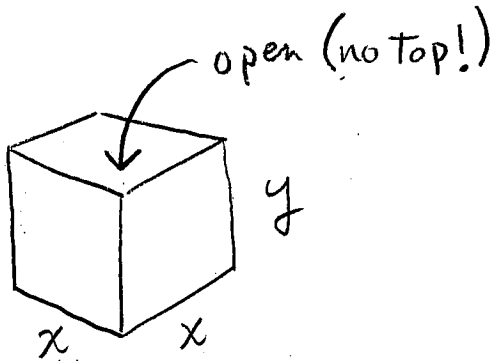 open (no top!)
y
x x